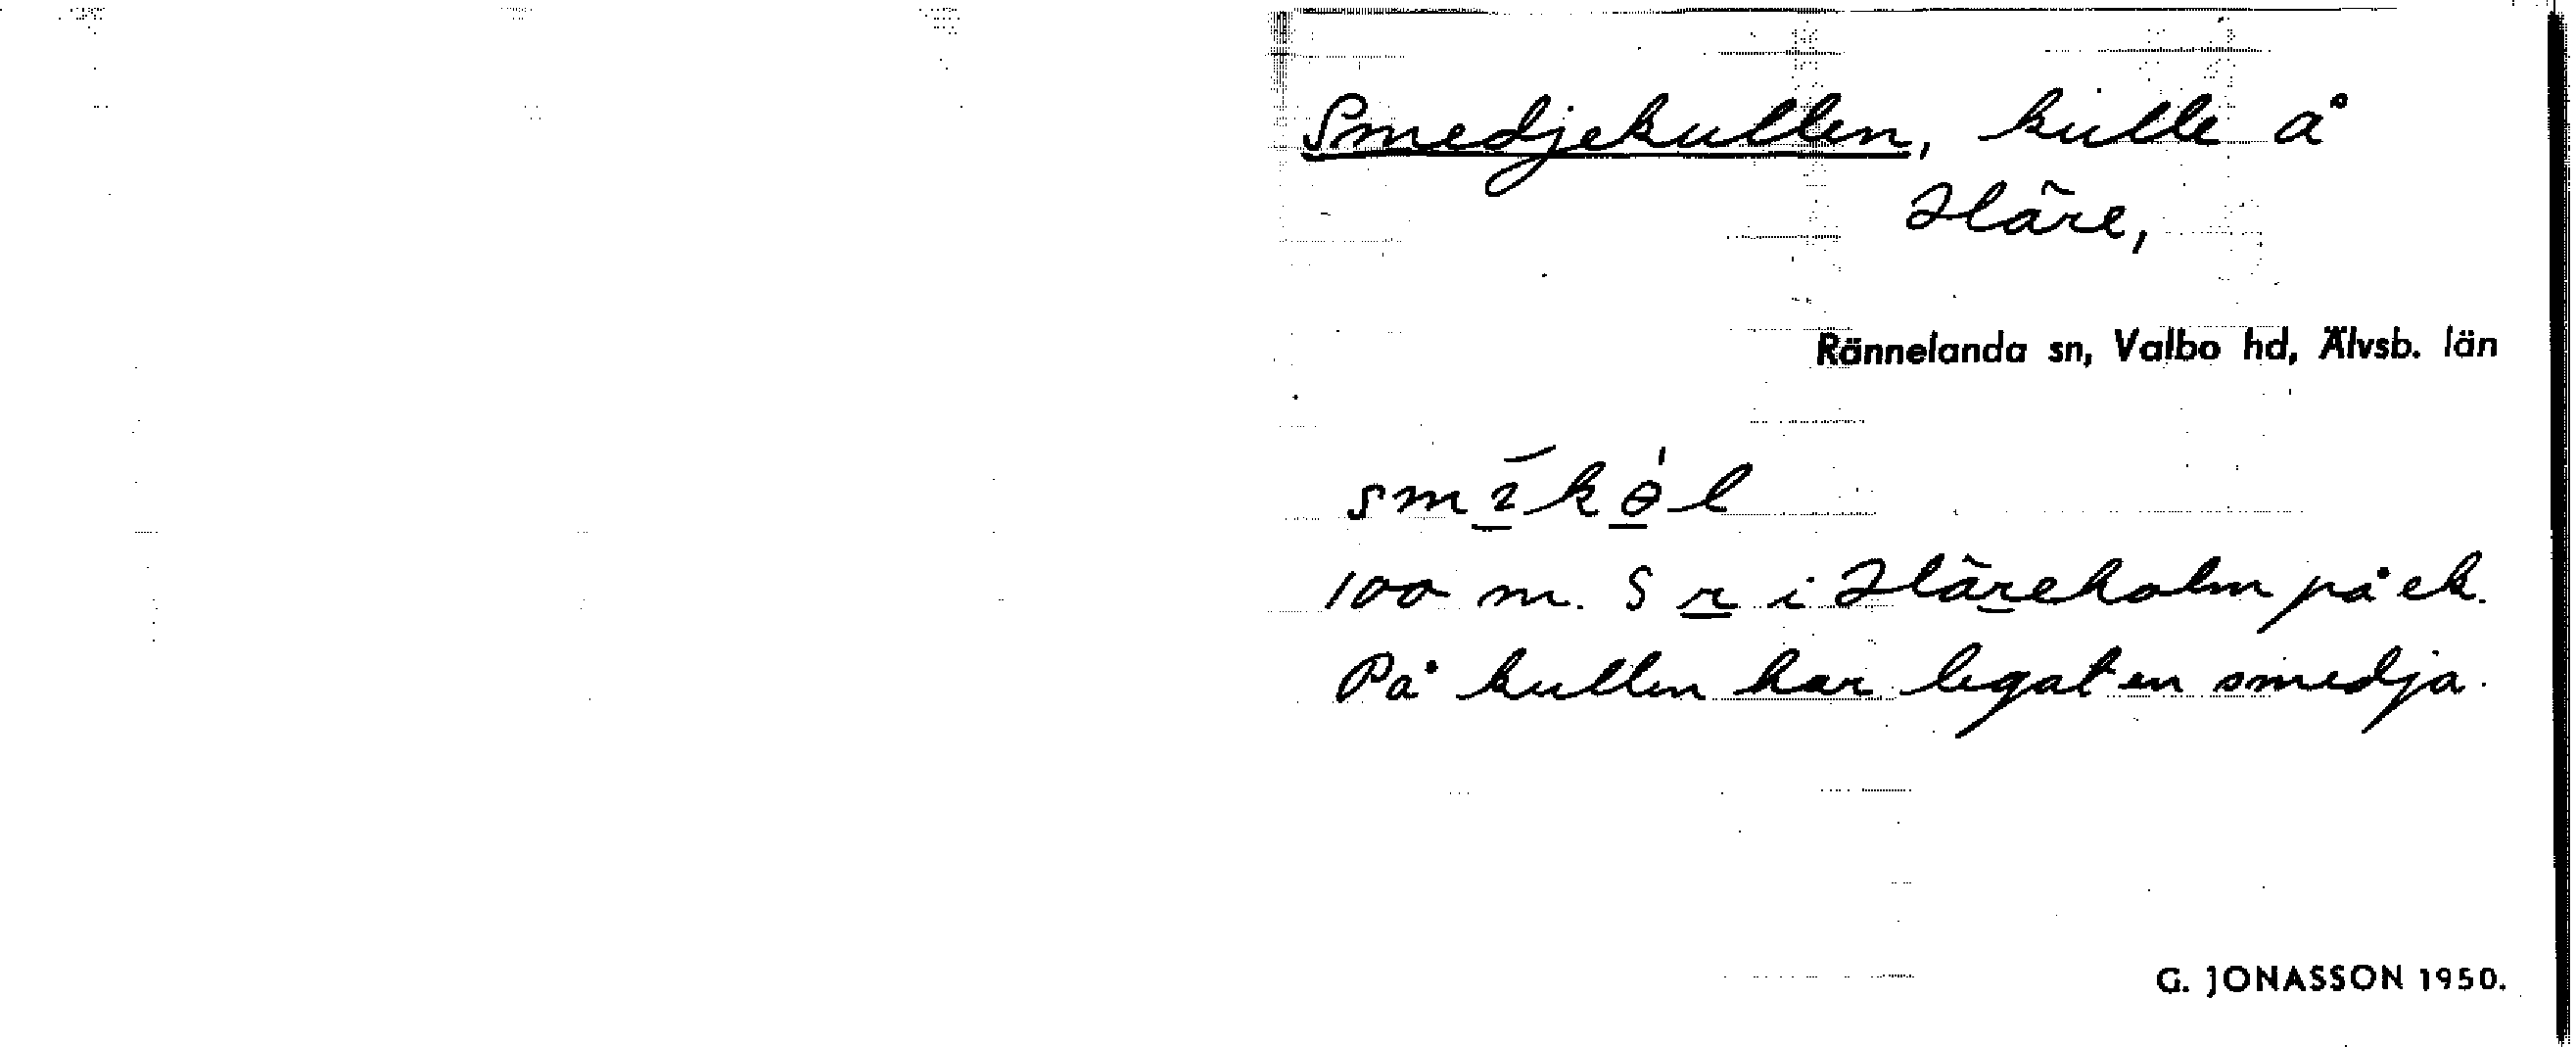 Smedjekullen, kulle å
Häre,
Rännelanda sn, Valbo hd, Älvsb. län
100 m. S r i Häreholm på ek.
På kullen har legat en smedja.
G. JONASSON 1950.